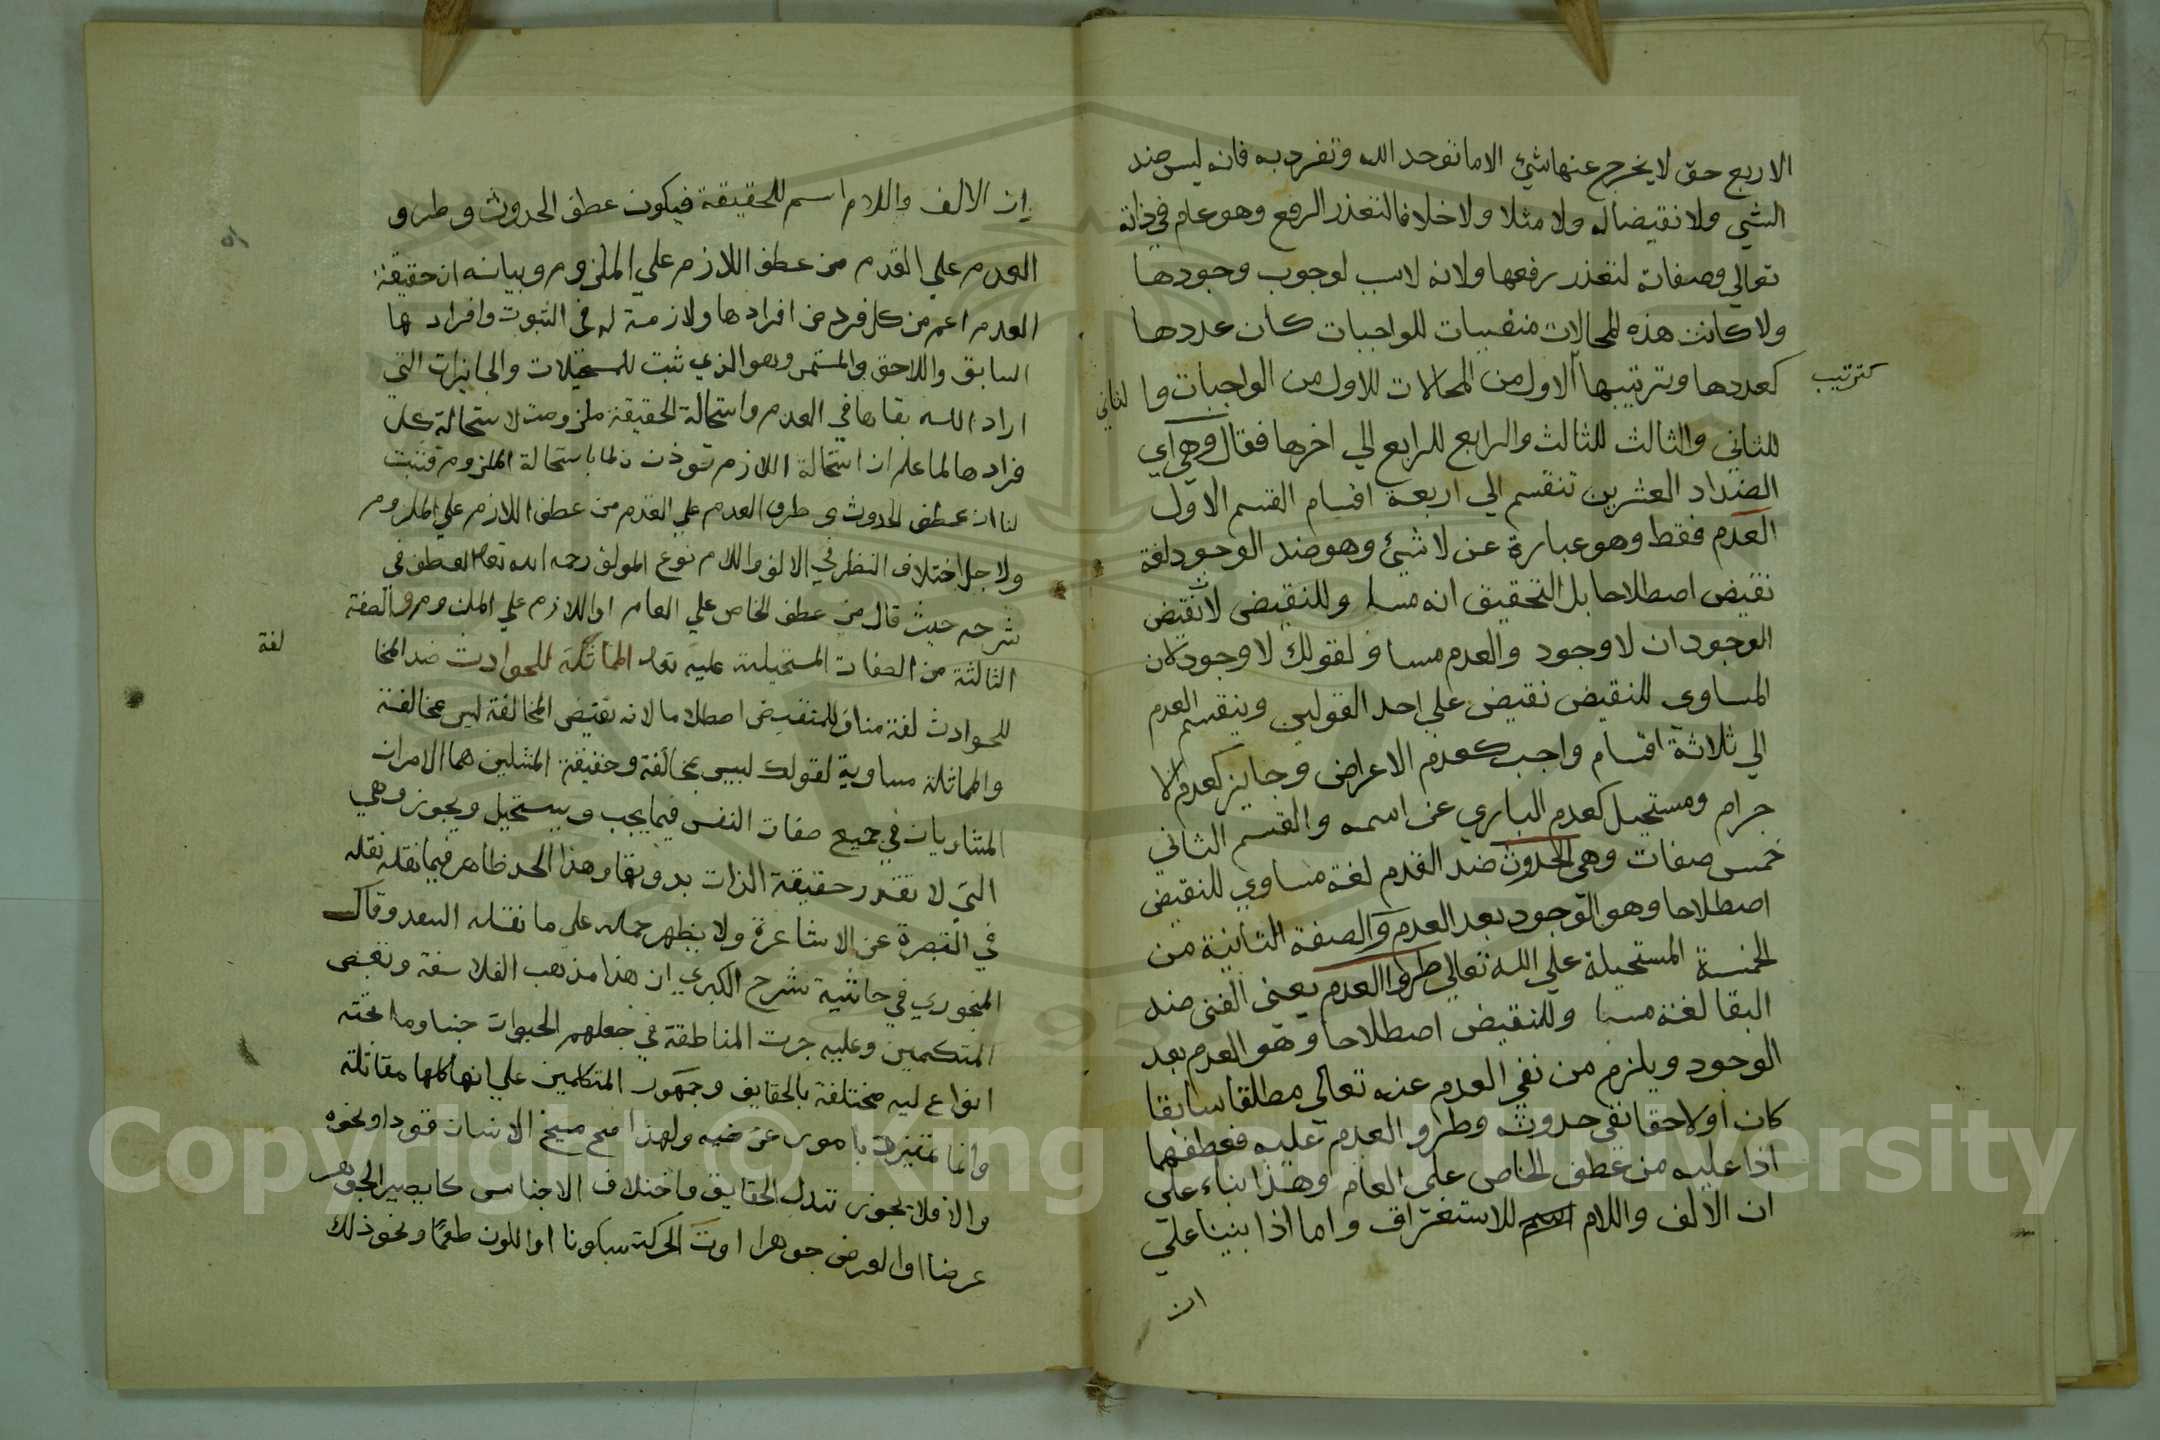 الاربع حق لا يخرج عنها شئ الا ما توحد الله وتفرد به فانه ليس ضد
الشي ولا نقيضا له ولا مثلا ولا خلافا لتعذر الرفع وهو عام في ذاته
تعالي وصفاته لتعذر رفعها ولانه لوجوب وجودها
ولا كانت هذه المحالات للواجبات كان عددها
كعددها وترتيبها الاول من المحالات للاول من الواجبات والثاني
كترتيب
للثاني والثالث للثالث والرابع للرابع الي اخرها فقال وهي اي
الاضداد العشرين تنقسم الي اربعة اقسام القسم الاول
العدم فقط وهو عبارة عن لا شيئ وهو ضد الوجود لغة
نقيض اصطلاحا بل التحقيق انه مساو للنقيض لا نقيض
الوجود ان لا وجود والعدم مساو لقولك لا وجود لان
المساوي للنقيض نقيض علي احد القولين وينقسم العدم
الي ثلاثة اقسام واجب كعدم الاعراض وجايز كعدم الا
جرام ومستحيل كعدم الباري عز اسمه والقسم الثاني
خمس صفات وهي الحدوث ضد القدم لغة مساوي للنقيض
اصطلاحا وهو الوجود بعد العدم والصفة الثانية من
الخمسة المستحيلة علي الله تعالي طرو العدم يعني الفني ضد
البقا لغة مساو للنقيض اصطلاحا وهو العدم بعد
الوجود ويلزم من نفي العدم عنه تعالي مطلقا سابقا
كان او لاحقا نفي حدوثه وطرو العدم عليه فعطفهما
اذا عليه من عطف الخاص علي العام وهذا بناء علي
ان الالف واللام للاستغراق واما اذا بنينا علي
ان
ان الالف واللام اسم للحقيقة فيكون عطف الحدوث وطرو
العدم علي القدم من عطف اللازم علي الملزوم وبيانه ان حقيقة
العدم اعم من كل فرد من افرادها ولازمة له في الثبوت وافرادها
السابق واللاحق والمستمر وهو الذي ثبت للمستحيلات والجايزات التي
اراد الله بقاها في العدم واستحالة الحقيقة ملزومت لاستحالة كل
فرادها لما علم ان استحالة اللازم باستحالة الملزوم فثبت
لنا ان عطف الحدوث و طرو العدم علي القدم من عطف اللازم علي الملزوم
ولاجل اختلاف النظر في الالف واللام نوع المولف رحمه الله تعالي العطف في
شرحه حيث قال من عطف الخاص علي العام او اللازم علي الملزوم والصفة
الثالثة من الصفات المستحيلة عليه تعالي المماثلة للحوادث ضد المخا
لفة
للحوادث لغة مناف للنقيض اصطلاحا لانه نقيض المخالفة ليس بمخالفة
والمماثلة مساوية لقولك ليس بمخالفة وحقيقة المثلين هما الامران
المتساويان في جميع صفات النفس فيما يجب ويستحيل ويجوز وهي
التي لا تتقرر حقيقة الذات بدونها وهذا الحد ظاهر فيما نقله نقله
في التبصرة عن الاشاعرة ولا يظهر حمله علي ما نقله السعد وقال
المنجوري في حاشية شرح الكبري ان هذا مذهب الفلاسفة وبعض
المتكلمين وعليه جرت المناطقة في جعلهم الحيوان جنسا وما تحته
انواع ليه مختلفة بالحقايق وجمهور المتكلمين علي انها كلها
وانما تتميز بامور ولهذا مسخ الانسان قردا ونحوه
والا فلا يجوز تبدل الحقايق واختلاف الاجناس كان يصير الجوهر
عرضا او العرض جوهرا اوت الحركة سكونا او اللون طعما ونحو ذلك